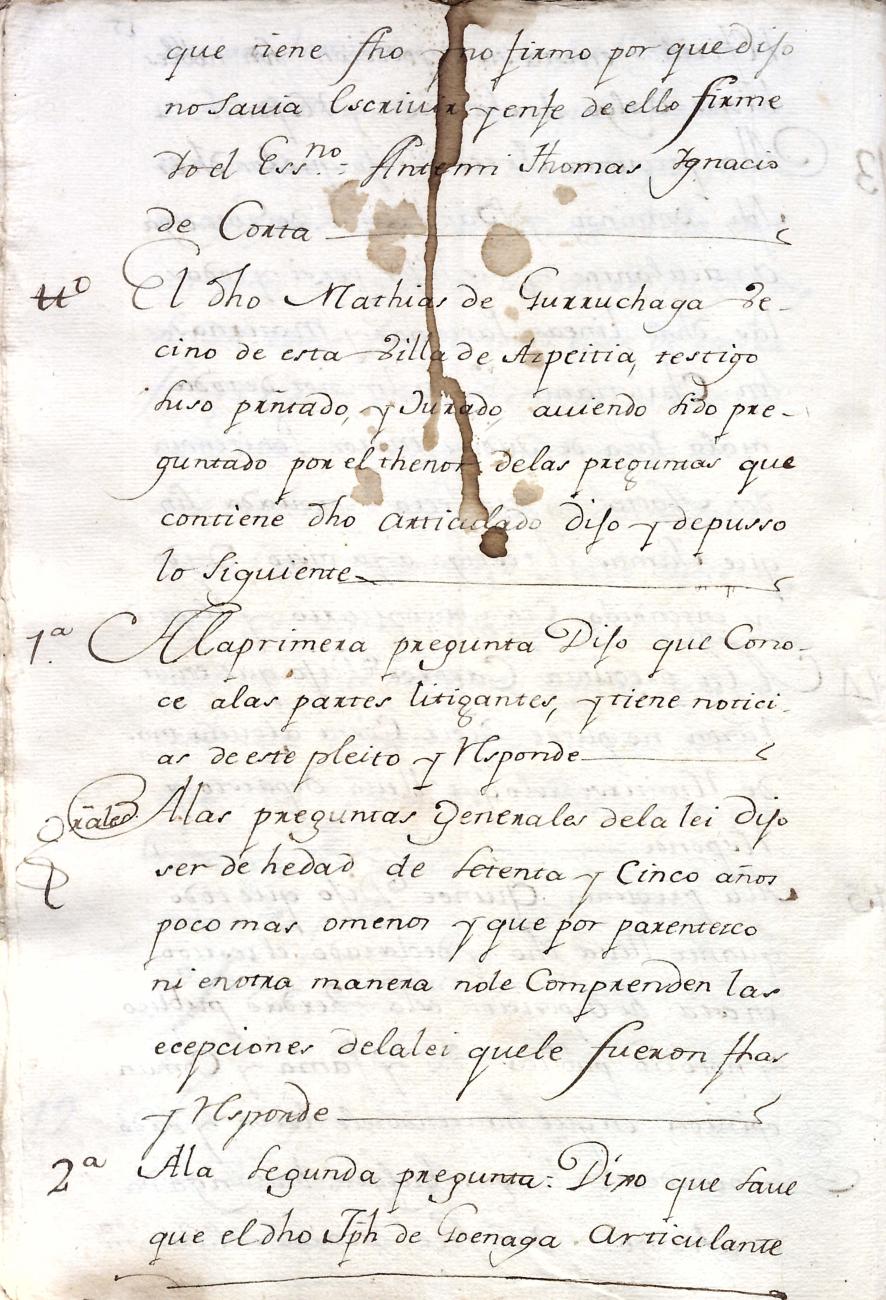 que tiene fho y no firmo por que dijo
no savia Escrivir y enfe de ello firme
Yo el Essno: Antemi Thomas Ygnacio
de Corta
tto El dho Mathias de Gurruchaga Ve-
cino de esta Villa de Azpeitia, testigo
suso prntado, y Jurado aviendo sido pre-
guntado por el thenor delas preguntas que
contiene dho articulado dijo y depusso
lo siguiente
1a. Alaprimera pregunta Dijo que Cono-
ce alas partes litigantes, y tiene notici-
as de este pleito y Responde
rales Alas preguntas Generales dela lei dijo
ser de hedad de setenta y Cinco años
poco mas omenos y que por parentesco
ni enotra manera nole Comprenden las
ecepciones delalei quele fueron fhas
y Responde
2a Ala segunda pregunta: Dixo que save
que el dho Jph de Goenaga Articulante